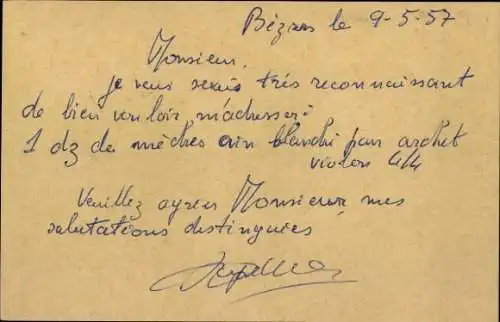 Béziers le 9-5-57
Monsieur,
je vous serais très reconnaissant
de bien vouloir m'adresser:
1 dz de mèches crin blanche pour archet
violon 4/4
Veuillez agréer Monsieur, mes
salutations distinguées